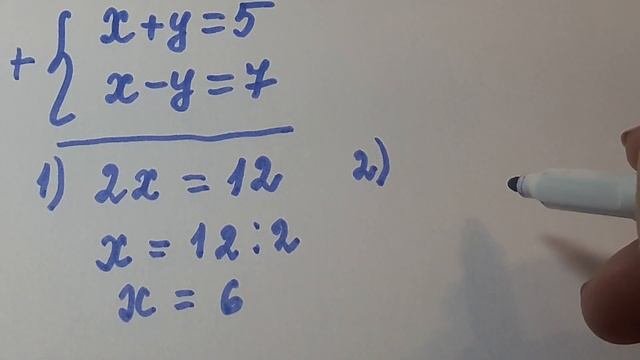 x+y=5
+
x-y=7
1) 2x=12
2)
x=12:2
x=6